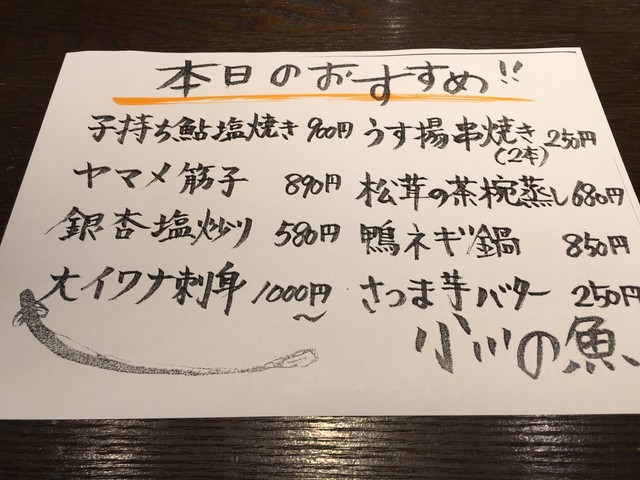 本日のおすすめ!!
子持ち鮎塩焼き 900円
ヤマメ筋子 890円
銀杏塩炒り 580円
大イワナ刺身 1000円~
うす揚串焼き(2本) 250円
松茸の茶椀蒸し 680円
鴨ネギ鍋 850円
さつま芋バター 250円
小川の魚